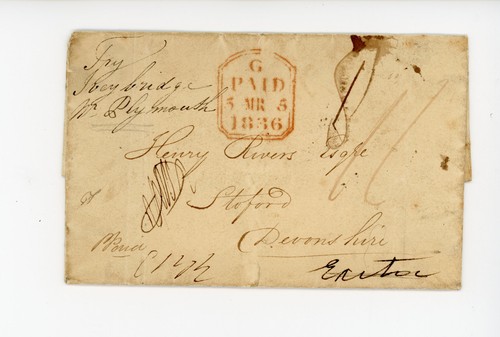 Try
Ivybridge
Nr Plymouth
G
PAID
5 MR 5
1836
Henry Rivers Esqre
Stoford
Devonshire
Exeter